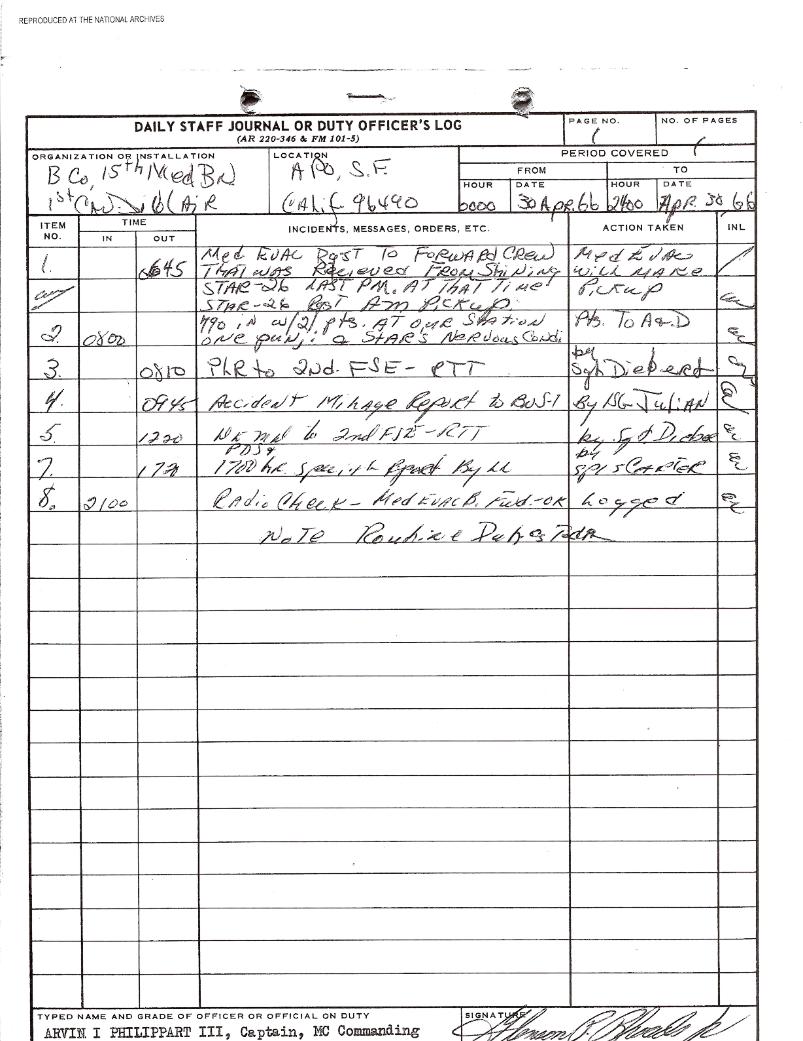 REPRODUCED AT THE NATIONAL ARCHIVES
DAILY STAFF JOURNAL OR DUTY OFFICER'S LOG
(AR 220-346 & FM 101-5)
PAGE NO.
1
NO. OF PAGES
1
ORGANIZATION OR INSTALLATION
B Co, 15th Med BN
1st Cav Div (AiR
LOCATION
APO, S.F.
CAliF 96490
PERIOD COVERED
FROM
TO
HOUR DATE HOUR DATE
0000 30 Apr 66 2400 Apr. 30 66
ITEM NO.
TIME
IN OUT
INCIDENTS, MESSAGES, ORDERS, ETC.
ACTION TAKEN
INL
1. 0645 Med EVAC Rqst To FORWARD CREW Med EVAC
THAT WAS Recieved FROM Shining will MAKE
STAR-26 LAST PM. AT THAT Time Pickup
STAR-26 Rqst AM Pickup.
2. 0800 790 iN w/2 pts. AT OUR STATION Pts. To A&D
ONE NERVOUS Condi
3. 0810 to 2nd. FSE - RTT by Sgt Diebert
4. 0945 Accident Milage Report to By
5. 1220 to 2nd FSE - RTT by Sgt
7. 1700 hr. Report By by SP/5 CARTER
8. 2100 RADio Check - Med EVAC B. Fwd - OK Logged
NoTE Routine Duties
TYPED NAME AND GRADE OF OFFICER OR OFFICIAL ON DUTY
ARVIN I PHILIPPART III, Captain, MC Commanding
SIGNATURE